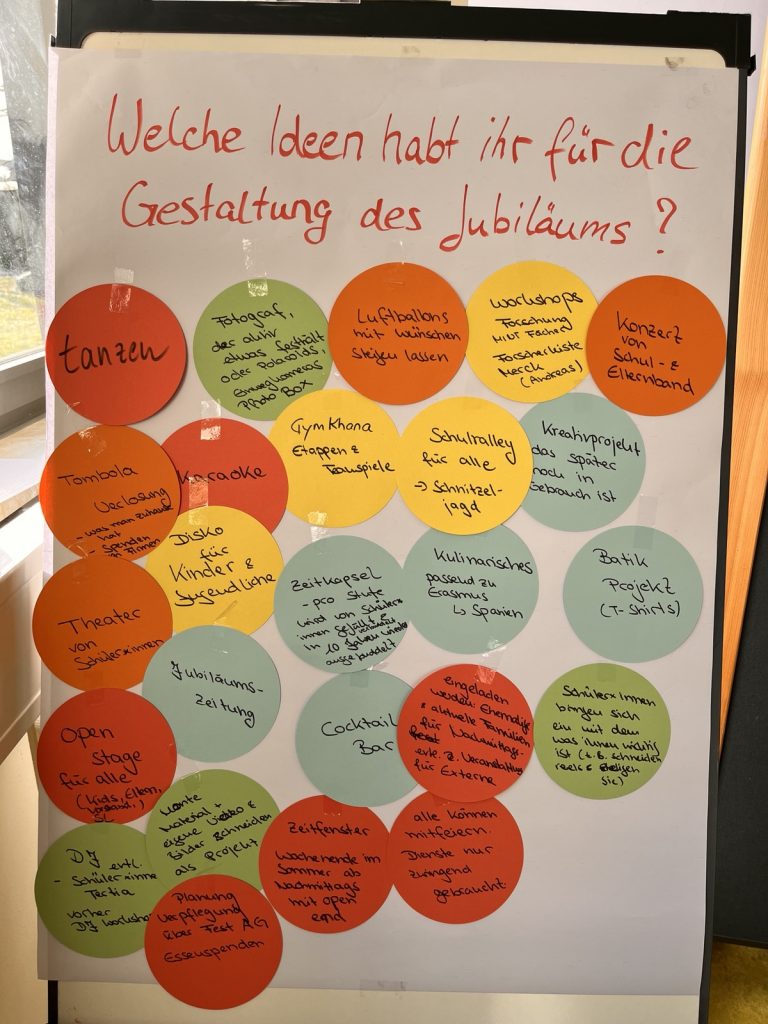 Welche Ideen habt ihr für die
Gestaltung des Jubiläums?
tanzen
Fotograf,
der aktiv
etwas festhält
oder Polaroids,
Einwegkameras
Photo Box
Luftballons
mit wünschen
steigen lassen
Workshops
Forschung
MINT Fächer
Forscherkiste
Merck
(Andreas)
Konzert
von
Schul- &
Elternband
Tombola
Verlosung
- was man zuhause
hat
- Spenden
Firmen
Karaoke
Gymkhana
Etappen &
Schulralley
für alle
→ Schnitzel-
jagd
Kreativprojekt
das später
noch in
Gebrauch ist
Disko
für
Kinder &
Jugendliche
Zeitkapsel
- pro Stufe
wird von Schüler*
innen gefüllt &
in 10 Jahren wieder
ausgebuddelt
Kulinarisches
passend zu
Erasmus
↳ Spanien
Batik
Projekt
(T-Shirts)
Theater
von
Schüler*innen
Jubiläums-
zeitung
Cocktail
Bar
eingeladen
werden: Ehemalige
& aktuelle Familien
für Nachmittags-
evtl. z. Veranstaltung
für Externe
Schüler*innen
bringen sich
ein mit dem
was ihnen wichtig
ist (z.B. schneiden
reels &
sie)
Open
Stage
für alle
(Kids, Eltern,
Vorstand,)
SL
Material +
eigene Video &
Bilder schneiden
als Projekt
Zeitfenster
Wochenende im
Sommer ab
Nachmittags
mit open
end
alle können
mitfeiern.
Dienste nur
zwingend
gebraucht.
DJ evtl.
- Schüler*inne
Tertia
vorher
DJ Workshop
Planung
Verpflegung
über Fest AG
Essenspenden